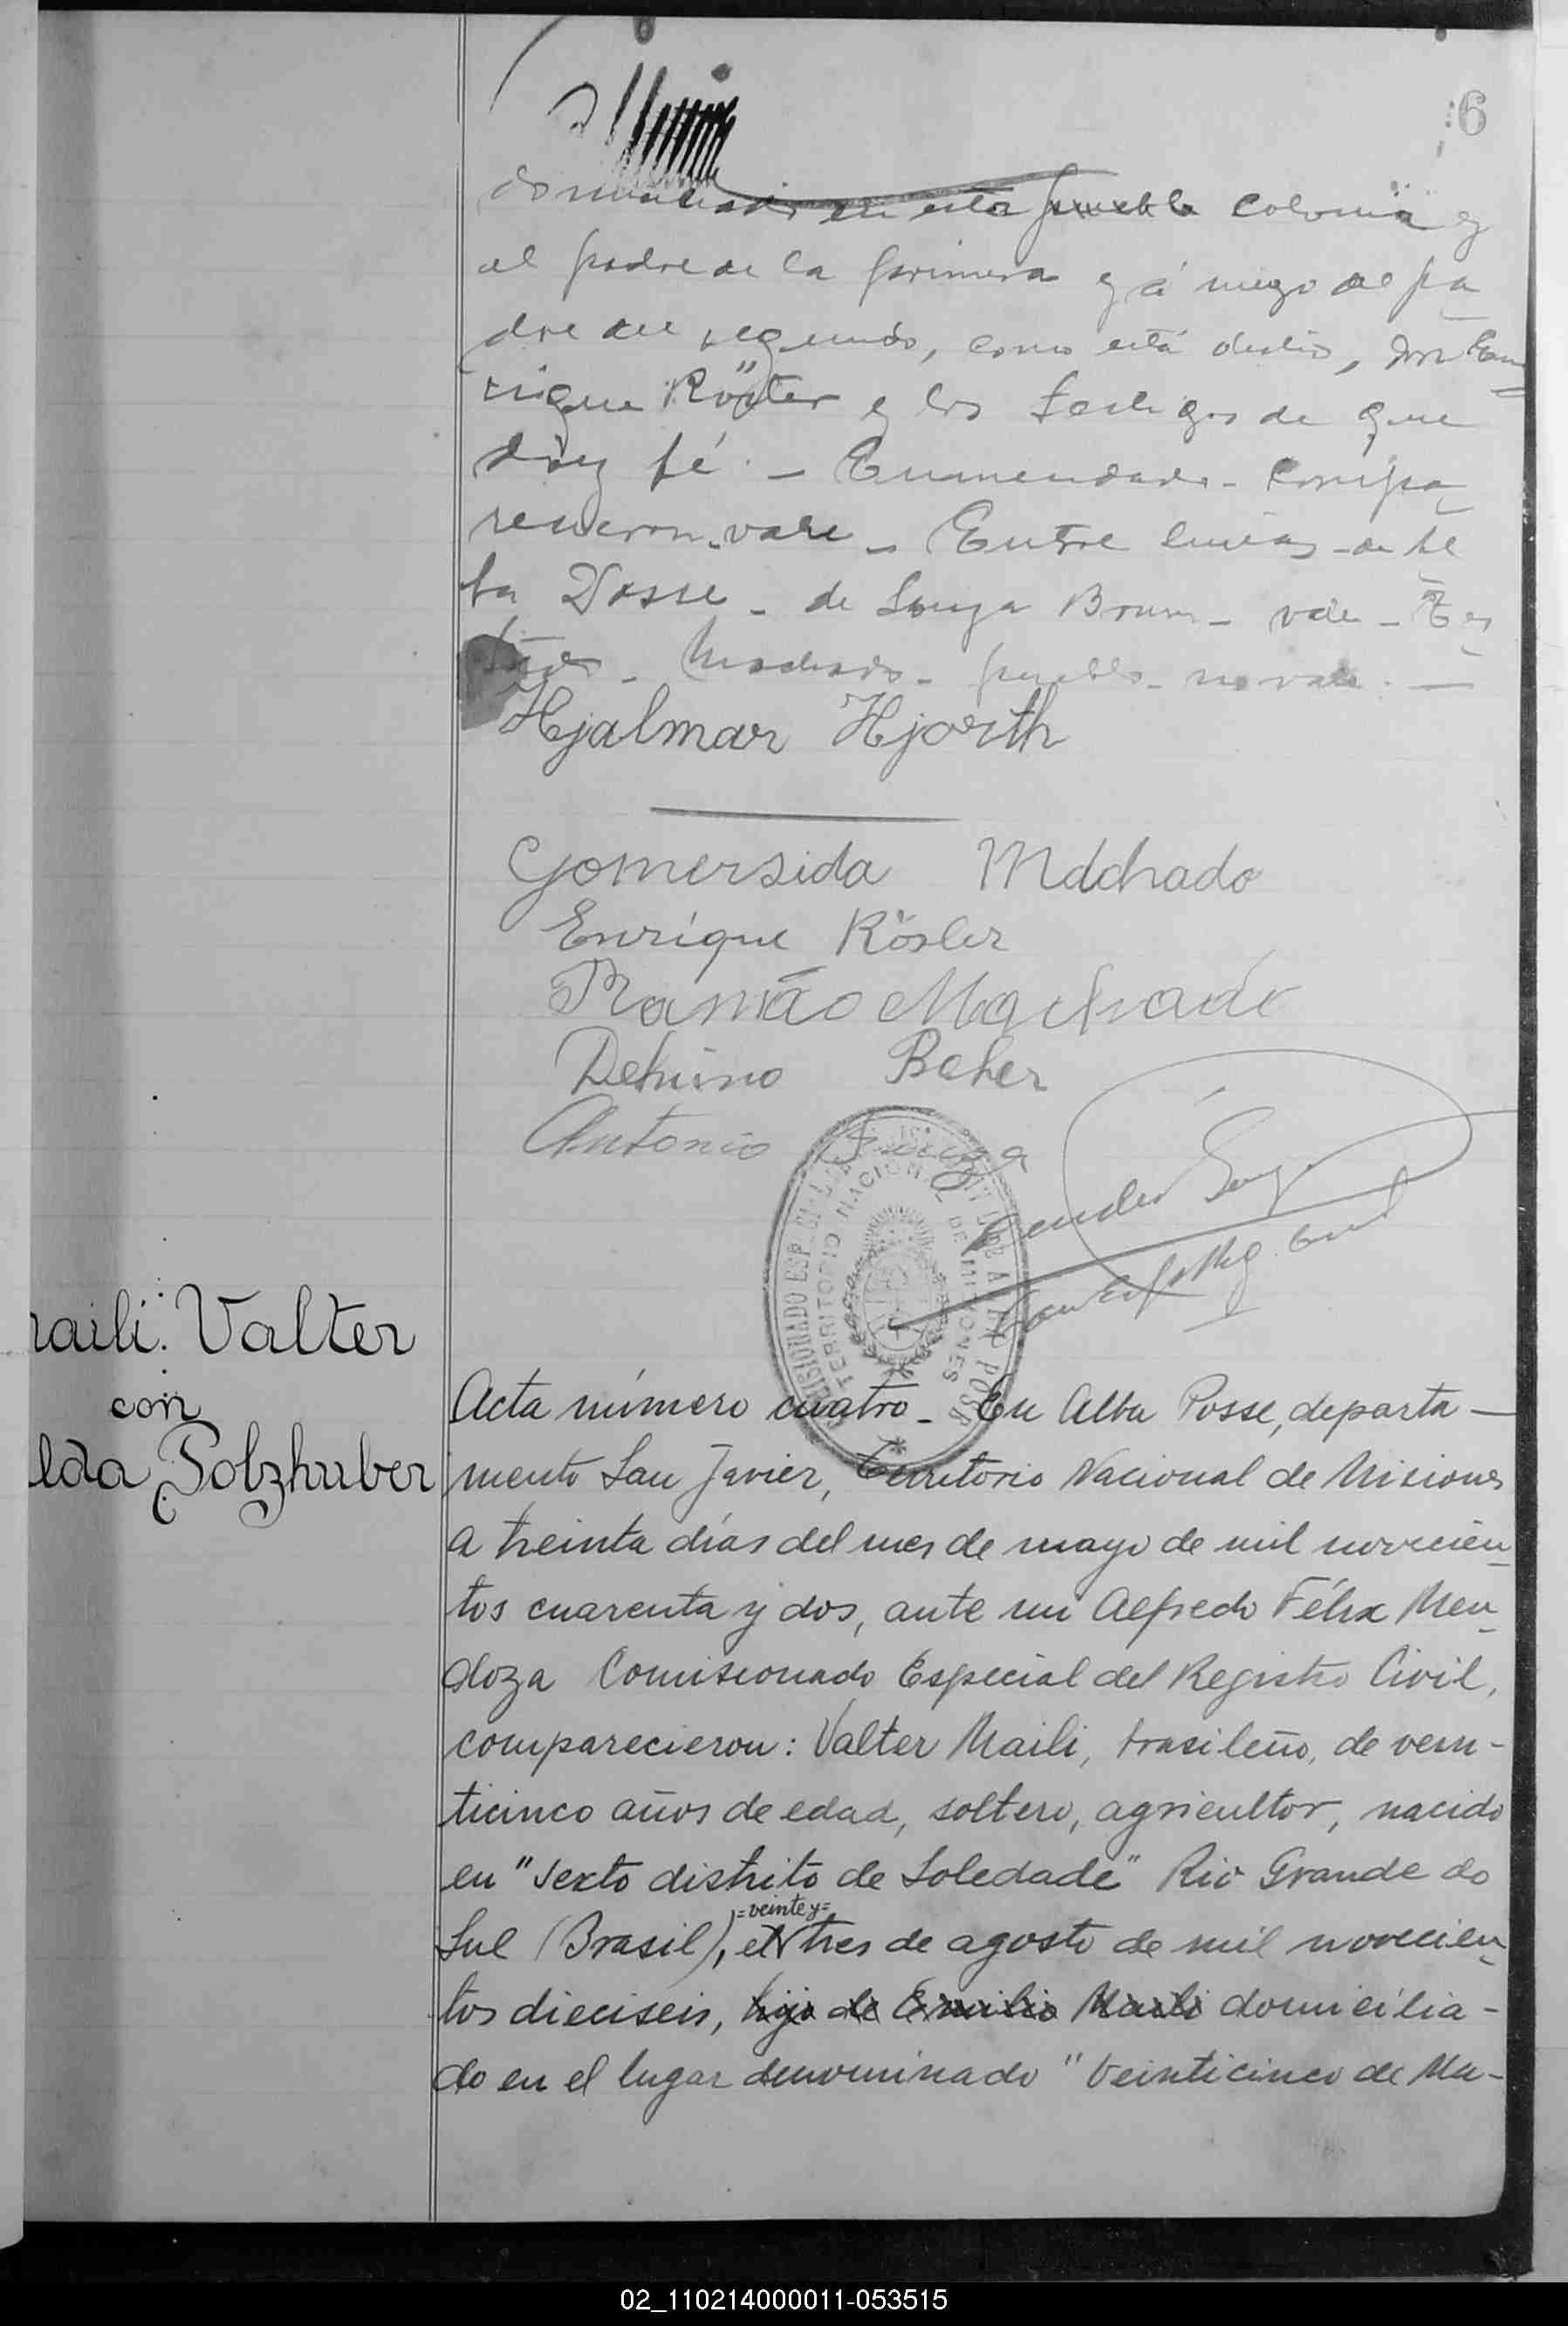 6
domiciliados en esta pueblo colonia y
al padre de la primera y á ruego del pa
dre del segundo, como está dicho, don En
rique Röster y los testigos de que
doy fé. - Enmendado - Compa
recieron - vale - Entre lineas - de
ta Posse - de Souza Brum - vale - Tes
tado - Machado - pueblo - no vale. —
Hjalmar Hjorth
Gomersida Machado
Enrique Rösler
Ramão Machado
Beher
Antonio Souza
TERRITORIO NACIONAL DE MISIONES
raili. Valter
con
lda Polzhuber
Acta número cuatro - En Alba Posse, departa —
mento San Javier, Territorio Nacional de Misiones
a treinta días del mes de mayo de mil novecien
tos cuarenta y dos, ante mi Alfredo Félix Men
doza Comisionado Especial del Registro Civil,
comparecieron: Valter Maili, brasileño, de vein-
ticinco años de edad, soltero, agricultor, nacido
en "Sexto distrito de Soledade" Rio Grande do
=veinte y=
Sul (Brasil), el tres de agosto de mil novecien
tos dieciseis, hijo de Emilio Maili domicilia-
do en el lugar denominado "Veinticinco de Ma-
02_110214000011-053515